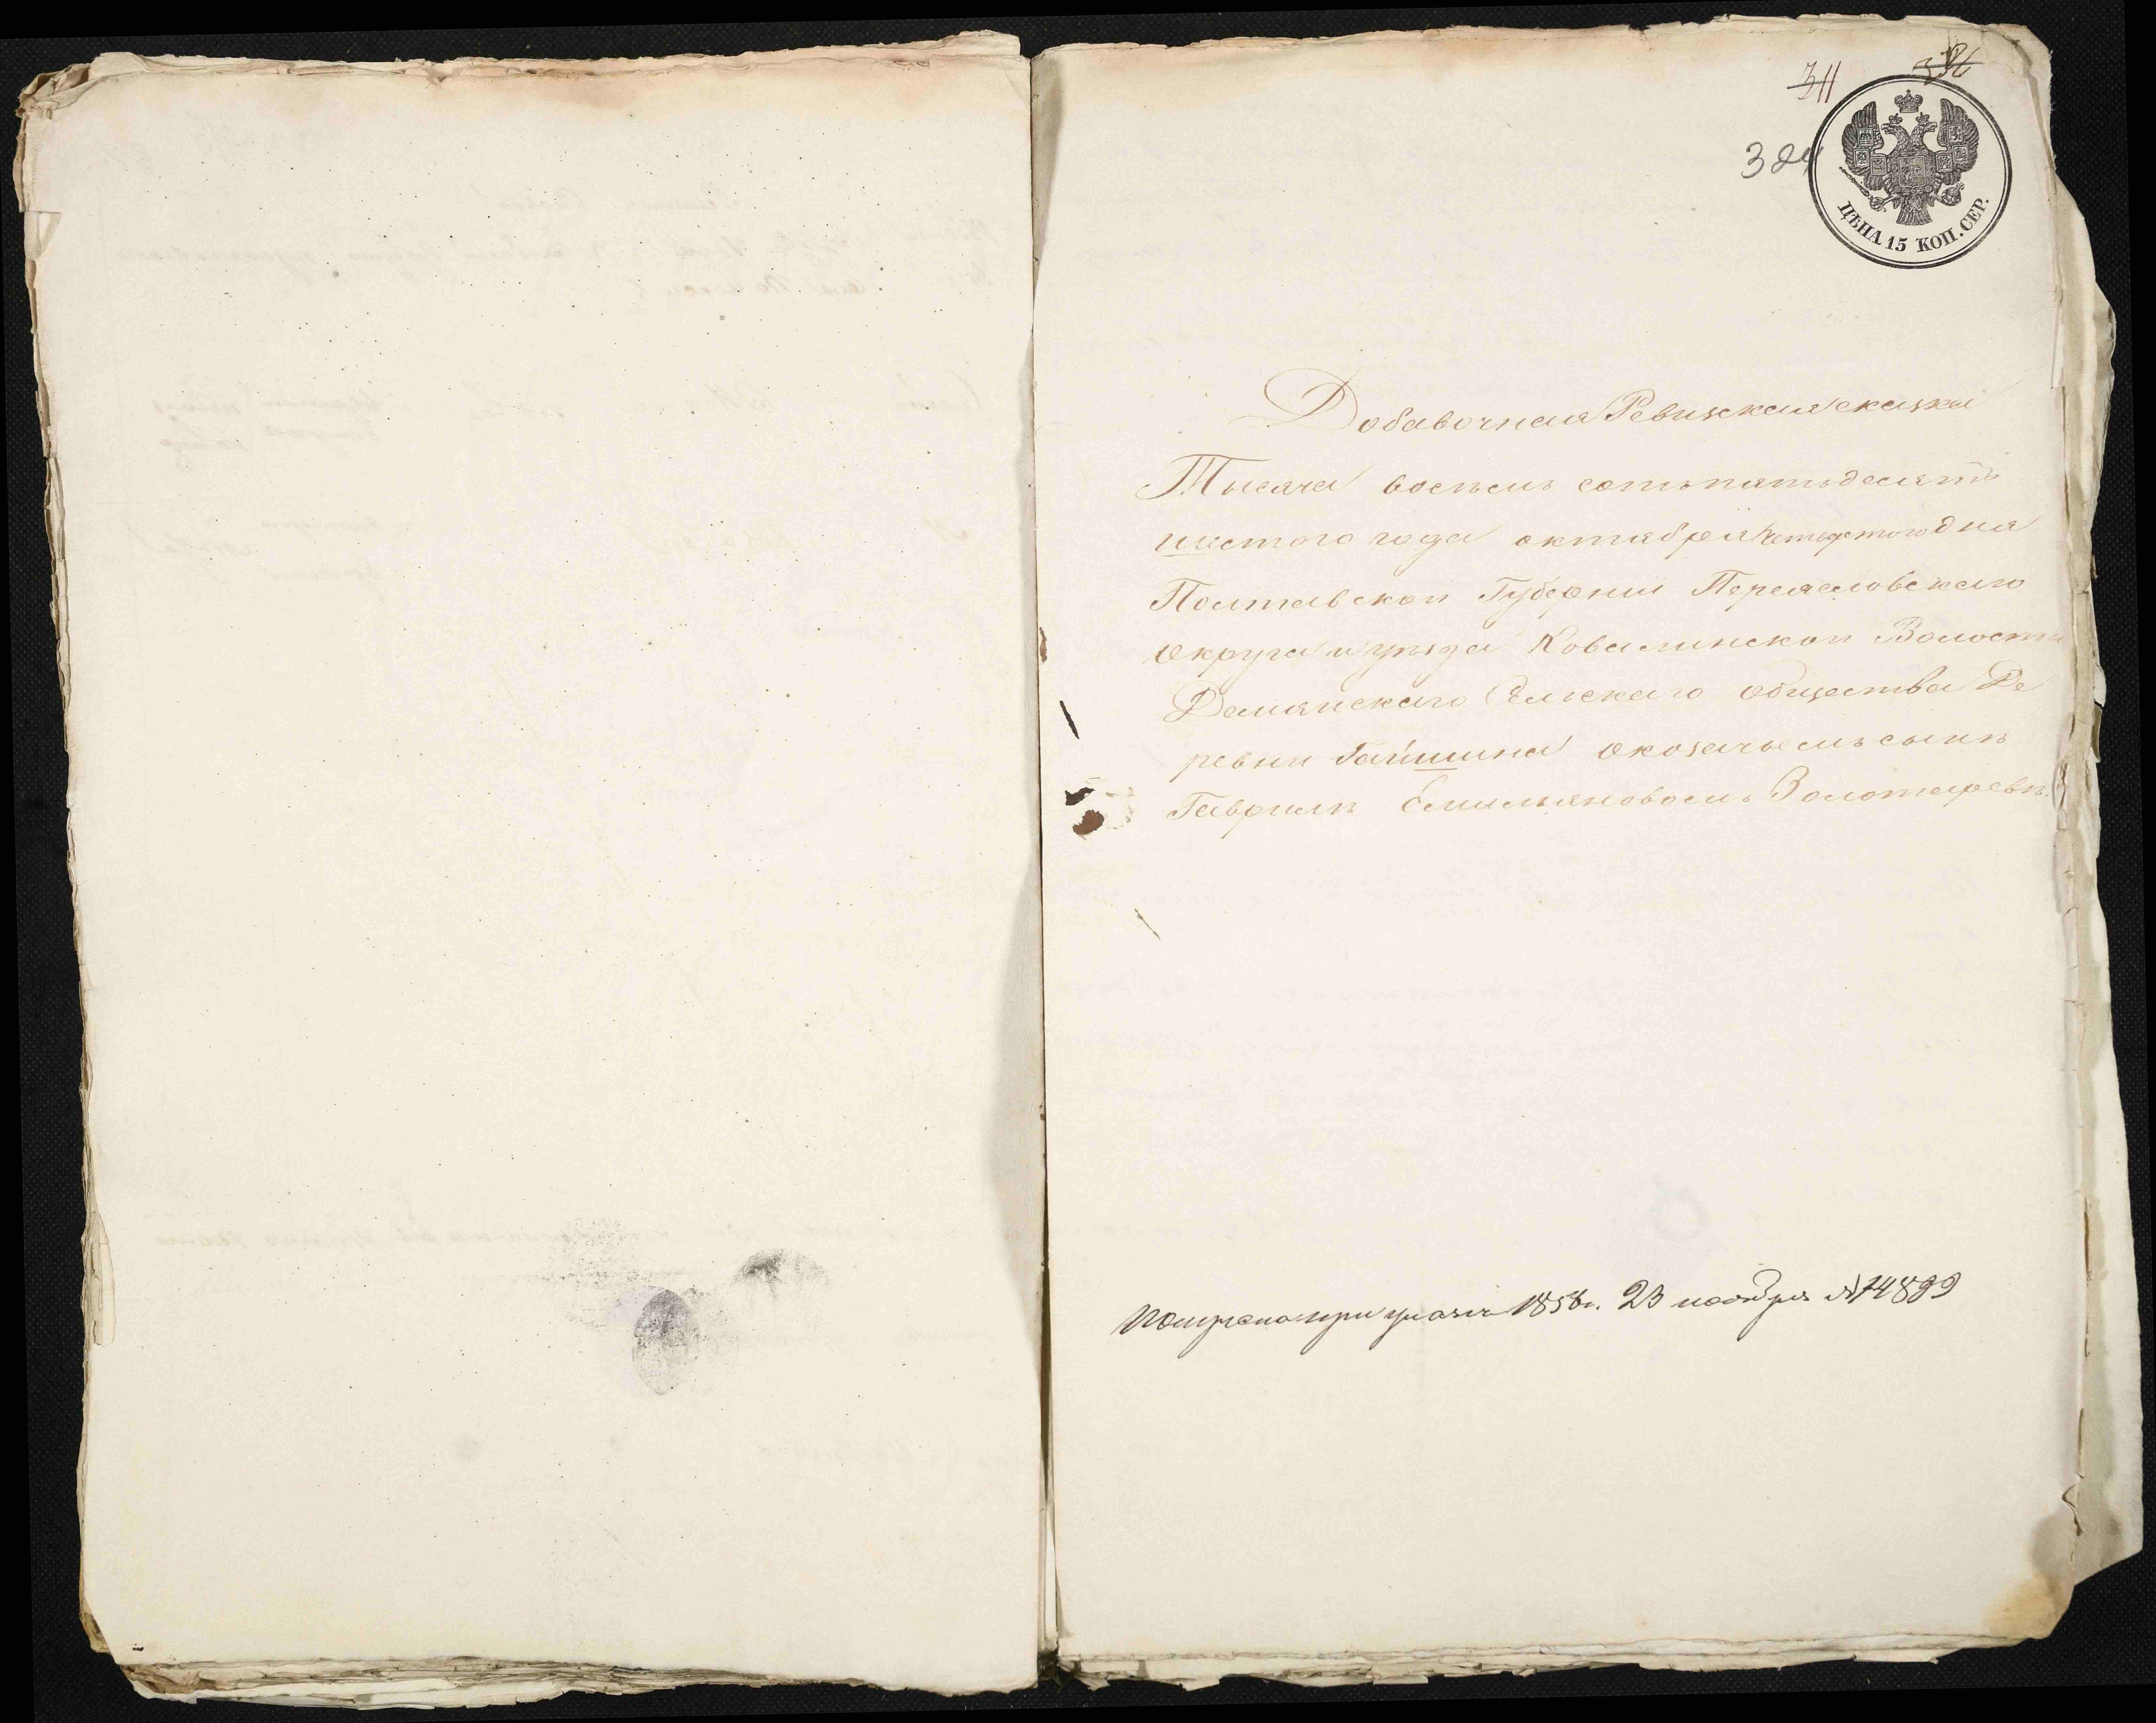 311 336
384
ЦѢНА 15 КОП. СЕР.
Добавочная Ревизская сказка
Тысяча восемь сотъ пятьдесятъ
шестого года октября четвертого дня
Полтавской Губерніи Переясловского
округа и уѣзда Ковалинской Волости
Демянского Сельского общества Де
ревни Гайшина о козачьемъ сынѣ
Гаврилѣ Емильяновомъ Золотаревѣ.
при указѣ 1856 г. 23 ноября № 14899